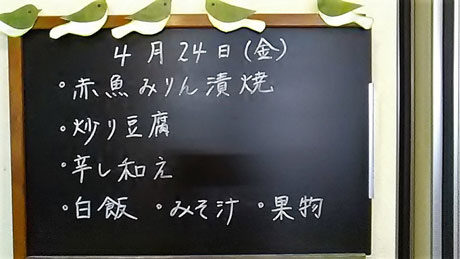 4月24日(金)
・赤魚みりん漬焼
・炒り豆腐
・辛し和え
・白飯 ・みそ汁 ・果物